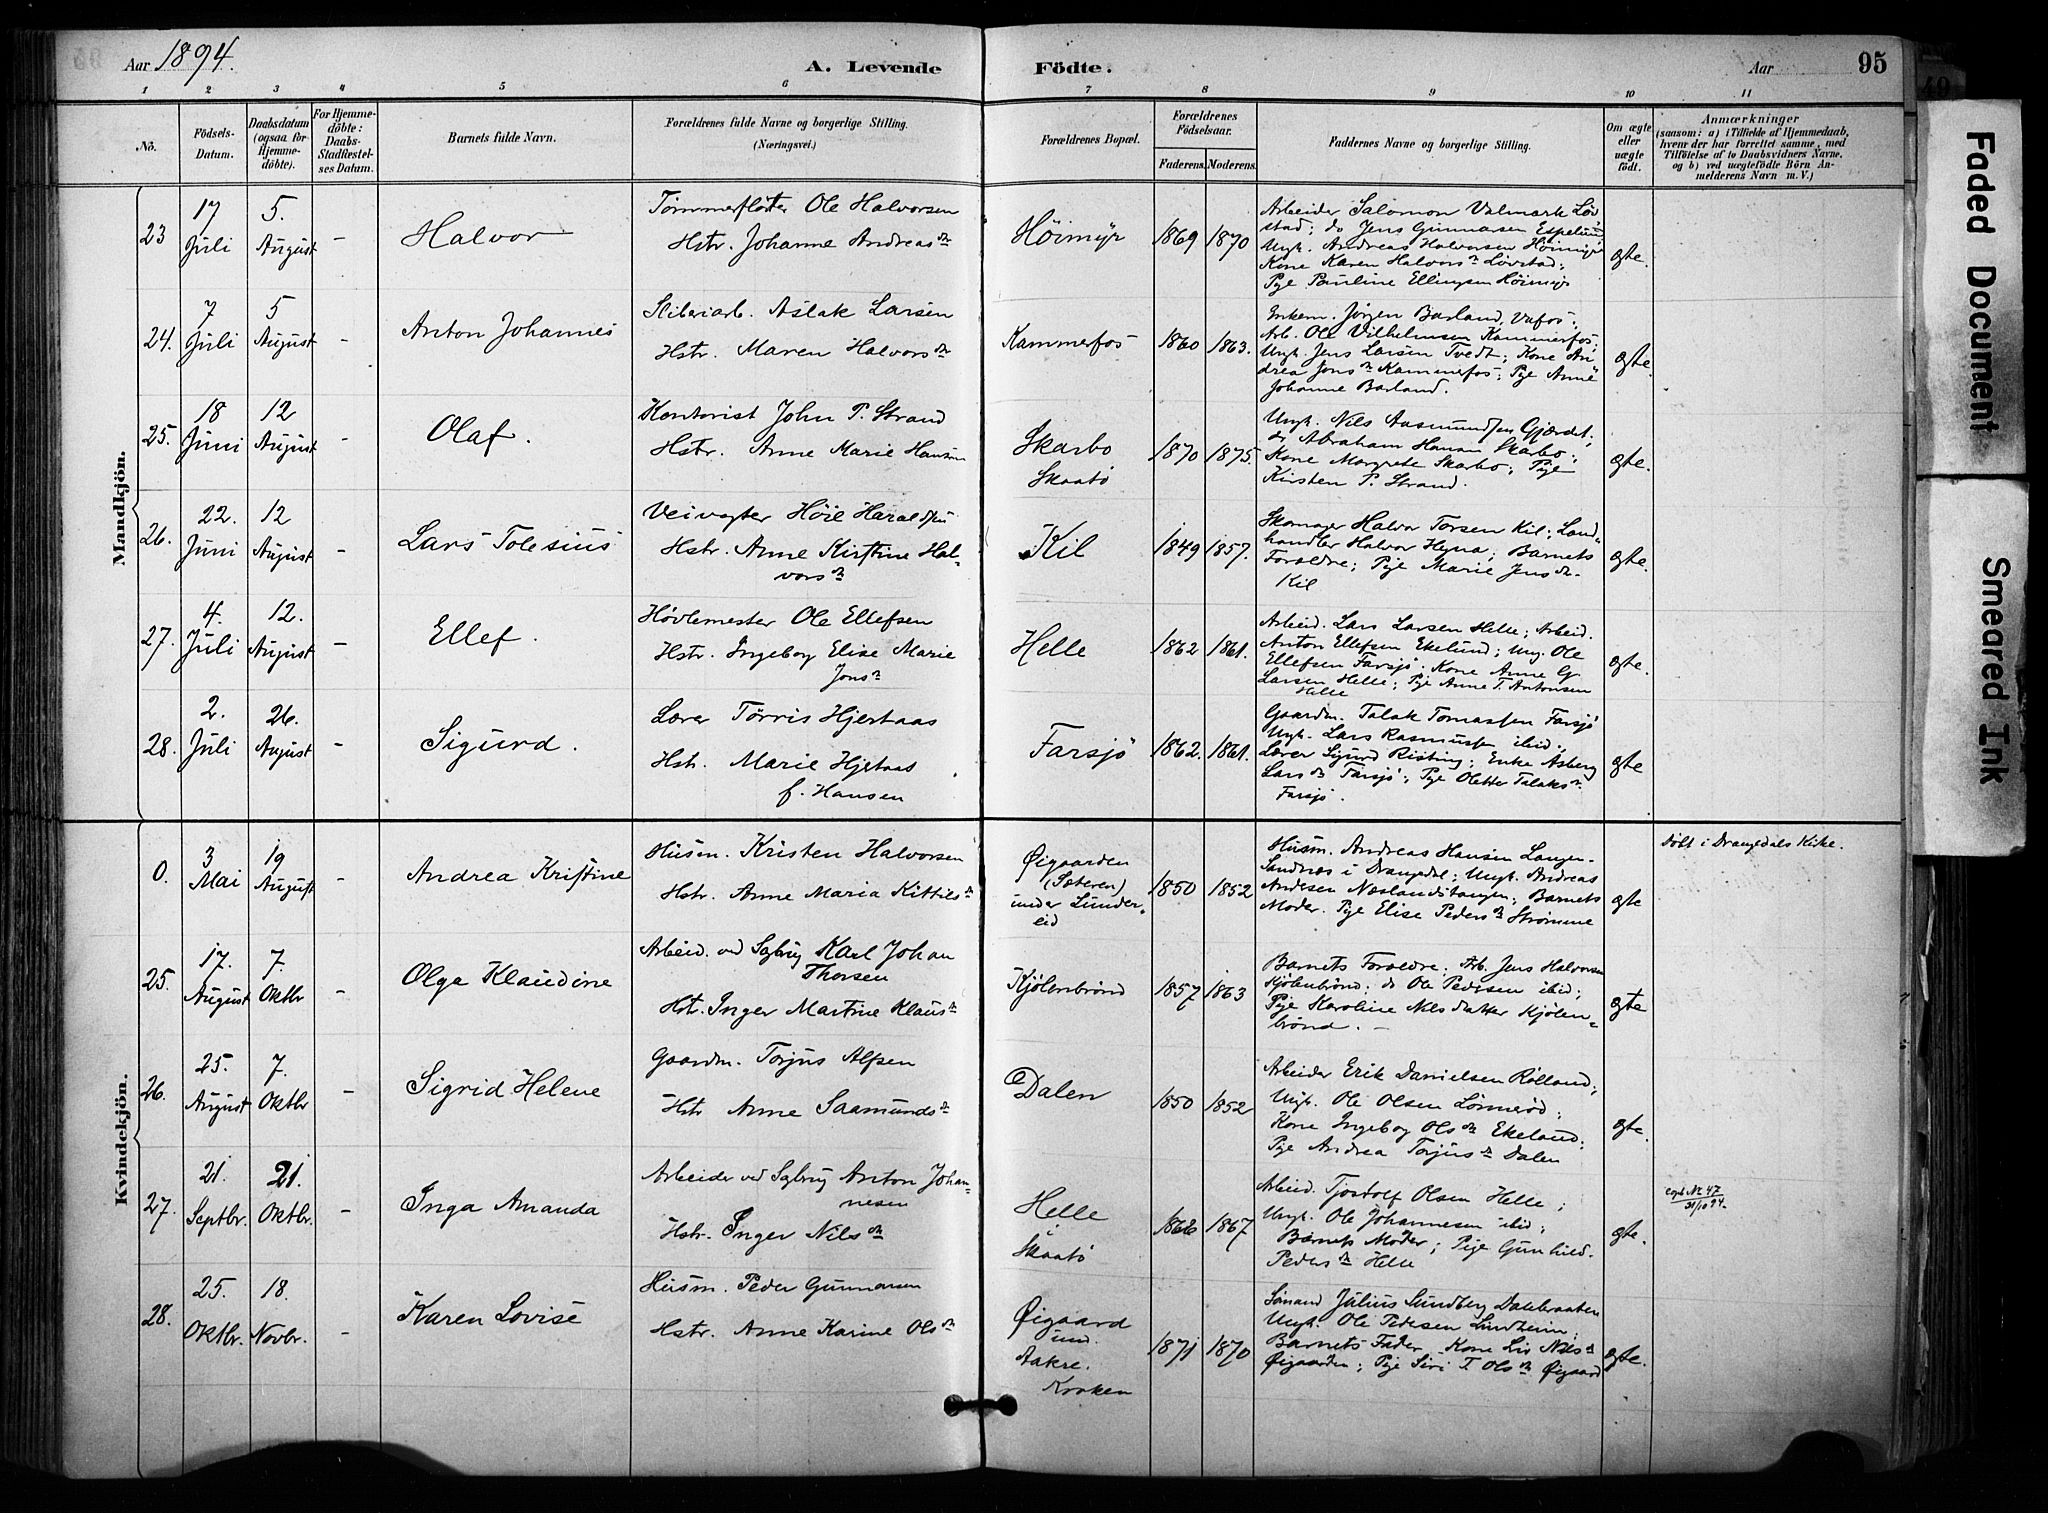 Aar 1894.
A. Levende Födte.
Aar 95
1 2 3 4 5 6 7 8 9 10 11
Nö.
Födsels-Datum.
Daabsdatum (ogsaa for Hjemme-döbte).
For Hjemme-döbte: Daabs-Stadfæstel-ses Datum.
Barnets fulde Navn.
Forældrenes fulde Navne og borgerlige Stilling. (Næringsvei.)
Forældrenes Bopæl.
Forældrenes Födselsaar.
Faderens. Moderens.
Faddernes Navne og borgerlige Stilling.
Om ægte eller uægte födt.
Anmærkninger
(saasom: a) i Tilfælde af Hjemmedaab, hvem der har forrettet samme, med Tilföielse af to Daabsvidners Navne, og b) ved uægtefödte Börn An-melderens Navn m. V.)
Mandkjön.
23 17 Juli 5. August - Halvor
Tømmerfløter Ole Halvorsen
Hstr. Johanne Andreasdr
Høimyr 1869 1870
Arbeider Salomon Valmark Løv
stad; do Jens Gunnarsen Espelund
Ungk. Andreas Halvorsen Høimyr
Kone Karen Halvorsdr Løvstad;
Pige Pauline Ellingsen Høimyr
ægte.
24. 7 Juli 5 August - Anton Johannes
Sliberiarb. Aslak Larsen
Hstr. Maren Halvorsdr
Kammerfos 1860 1863.
Inkem. Jørgen Barland, Vafos;
Arb. Ole Vilhelmsen Kammerfos;
Ungk. Jens Larsen Tvedt; Kone An
drea Jonsdr Kammerfos; Pige Anne
Johanne Barland.
ægte.
25. 18 Juni 12 August - Olaf.
Kontorist John P. Strand
Hstr. Anne Marie Hansen
Skarbo Skaatø 1870 1875.
Ungk. Nils Aasmundsen Gjærdet;
do Abraham Hansen Skarbo;
Kone Margrete Skarbo; Pige
Kirsten P. Strand.
ægte.
26. 22. Juni 12 August - Lars Tolesius
Veivogter Høie Haraldsen
Hstr. Anne Kirstine Hal-
vorsdr
Kil 1849 1857.
Skomager Halvor Torsen Kil; Land-
handler Halvor Heyna; Barnets
Forældre; Pige Marie Jensdr
Kil
ægte.
27. 4. Juli 12. August - Ellef.
Høvlemester Ole Ellefsen
Hstr. Ingeborg Elise Marie
Jonsdr
Helle 1862 1861.
Arbeid. Lars Larsen Helle; Arbeid.
Anton Ellefsen Ekelund; Ung. Ole
Ellefsen Farsjø. Kone Anne G.
Larsen Helle; Pige Anne T. Antonsen
Helle
ægte.
28. 2. Juli 26. August - Sigurd.
Lærer Tørris Hjertaas
Hstr. Marie Hjetaas
f. Hansen
Farsjø 1862. 1861.
Gaardm. Talak Tomassen Farsjø
Ungk. Lars Rasmussen ibid;
Lærer Sigurd Risting; Enke Asberg
Larsdr Farsjø; Pige Olette Talaksdr
Farsjø.
ægte
Kvindekjön.
0. 3 Mai 19 August - Andrea Kristine
Husm. Kristen Halvorsen
Hstr. Anne Maria Kittilsdr
Øigaarden
(Sæteren)
under Lunder-
eid
1850 1852
Husm. Andreas Hansen Langen-
Sandnæs i Drangedal; Ungk. Andreas
Andersen Næslandstangen; Barnets
Moder. Pige Elise Pedersdr Strømme
ægte
Døbt i Drangedals Kirke.
25. 17. August 7. Oktbr - Olga Klaudine
Arbeid. ved Sagbrug Karl Johan
Thorsen
Hstr. Inger Martine Klausdr
Kjølenbrønd 1857 1863
Barnets Forældre; Arb. Jens Halvorsen
Kjølenbrønd; do Ole Pedersen ibid;
Pige Karoline Nilsdatter Kjølen-
brønd. -
ægte
26. 25. August 7. Oktbr - Sigrid Helene
Gaardm. Torjus Alfsen
Hstr Anne Saamundsdr
Dalen 1850 1852
Arbeider Erik Danielsen Rølland;
Ungk. Ole Olsen Lønnerød;
Kone Ingeborg Olsdr Ekelund;
Pige Andrea Torjusdr Dalen
ægte.
27. 21. Septbr. 21. Oktbr. - Inga Amanda
Arbeider ved Sagbrug Anton Johan-
nesen
Hstr. Inger Nilsdr
Helle Skaatø 1866 1867
Arbeid. Tjostolf Olsen Helle;
Ungk. Ole Johannesen ibid;
Barnets Moder; Pige Gunhild
Pedersdr Helle
ægte.
No 47
31/10 94.
28. 25. Oktbr. 18. Novbr. - Karen Lovise
Husm. Peder Gunnarsen
Hstr. Anne Karine Olsdr
Øigaard
und.
Aakre.
Kroken
1871 1870
Sømand Julius Sundberg Dalsbraaten
Ungk. Ole Pedersen Lindheim;
Barnets Fader Kone Liv Nilsdr
Øigaarden; Pige Siri T. Olsdr Øigaard
ægte.
Faded Document
Smeared Ink